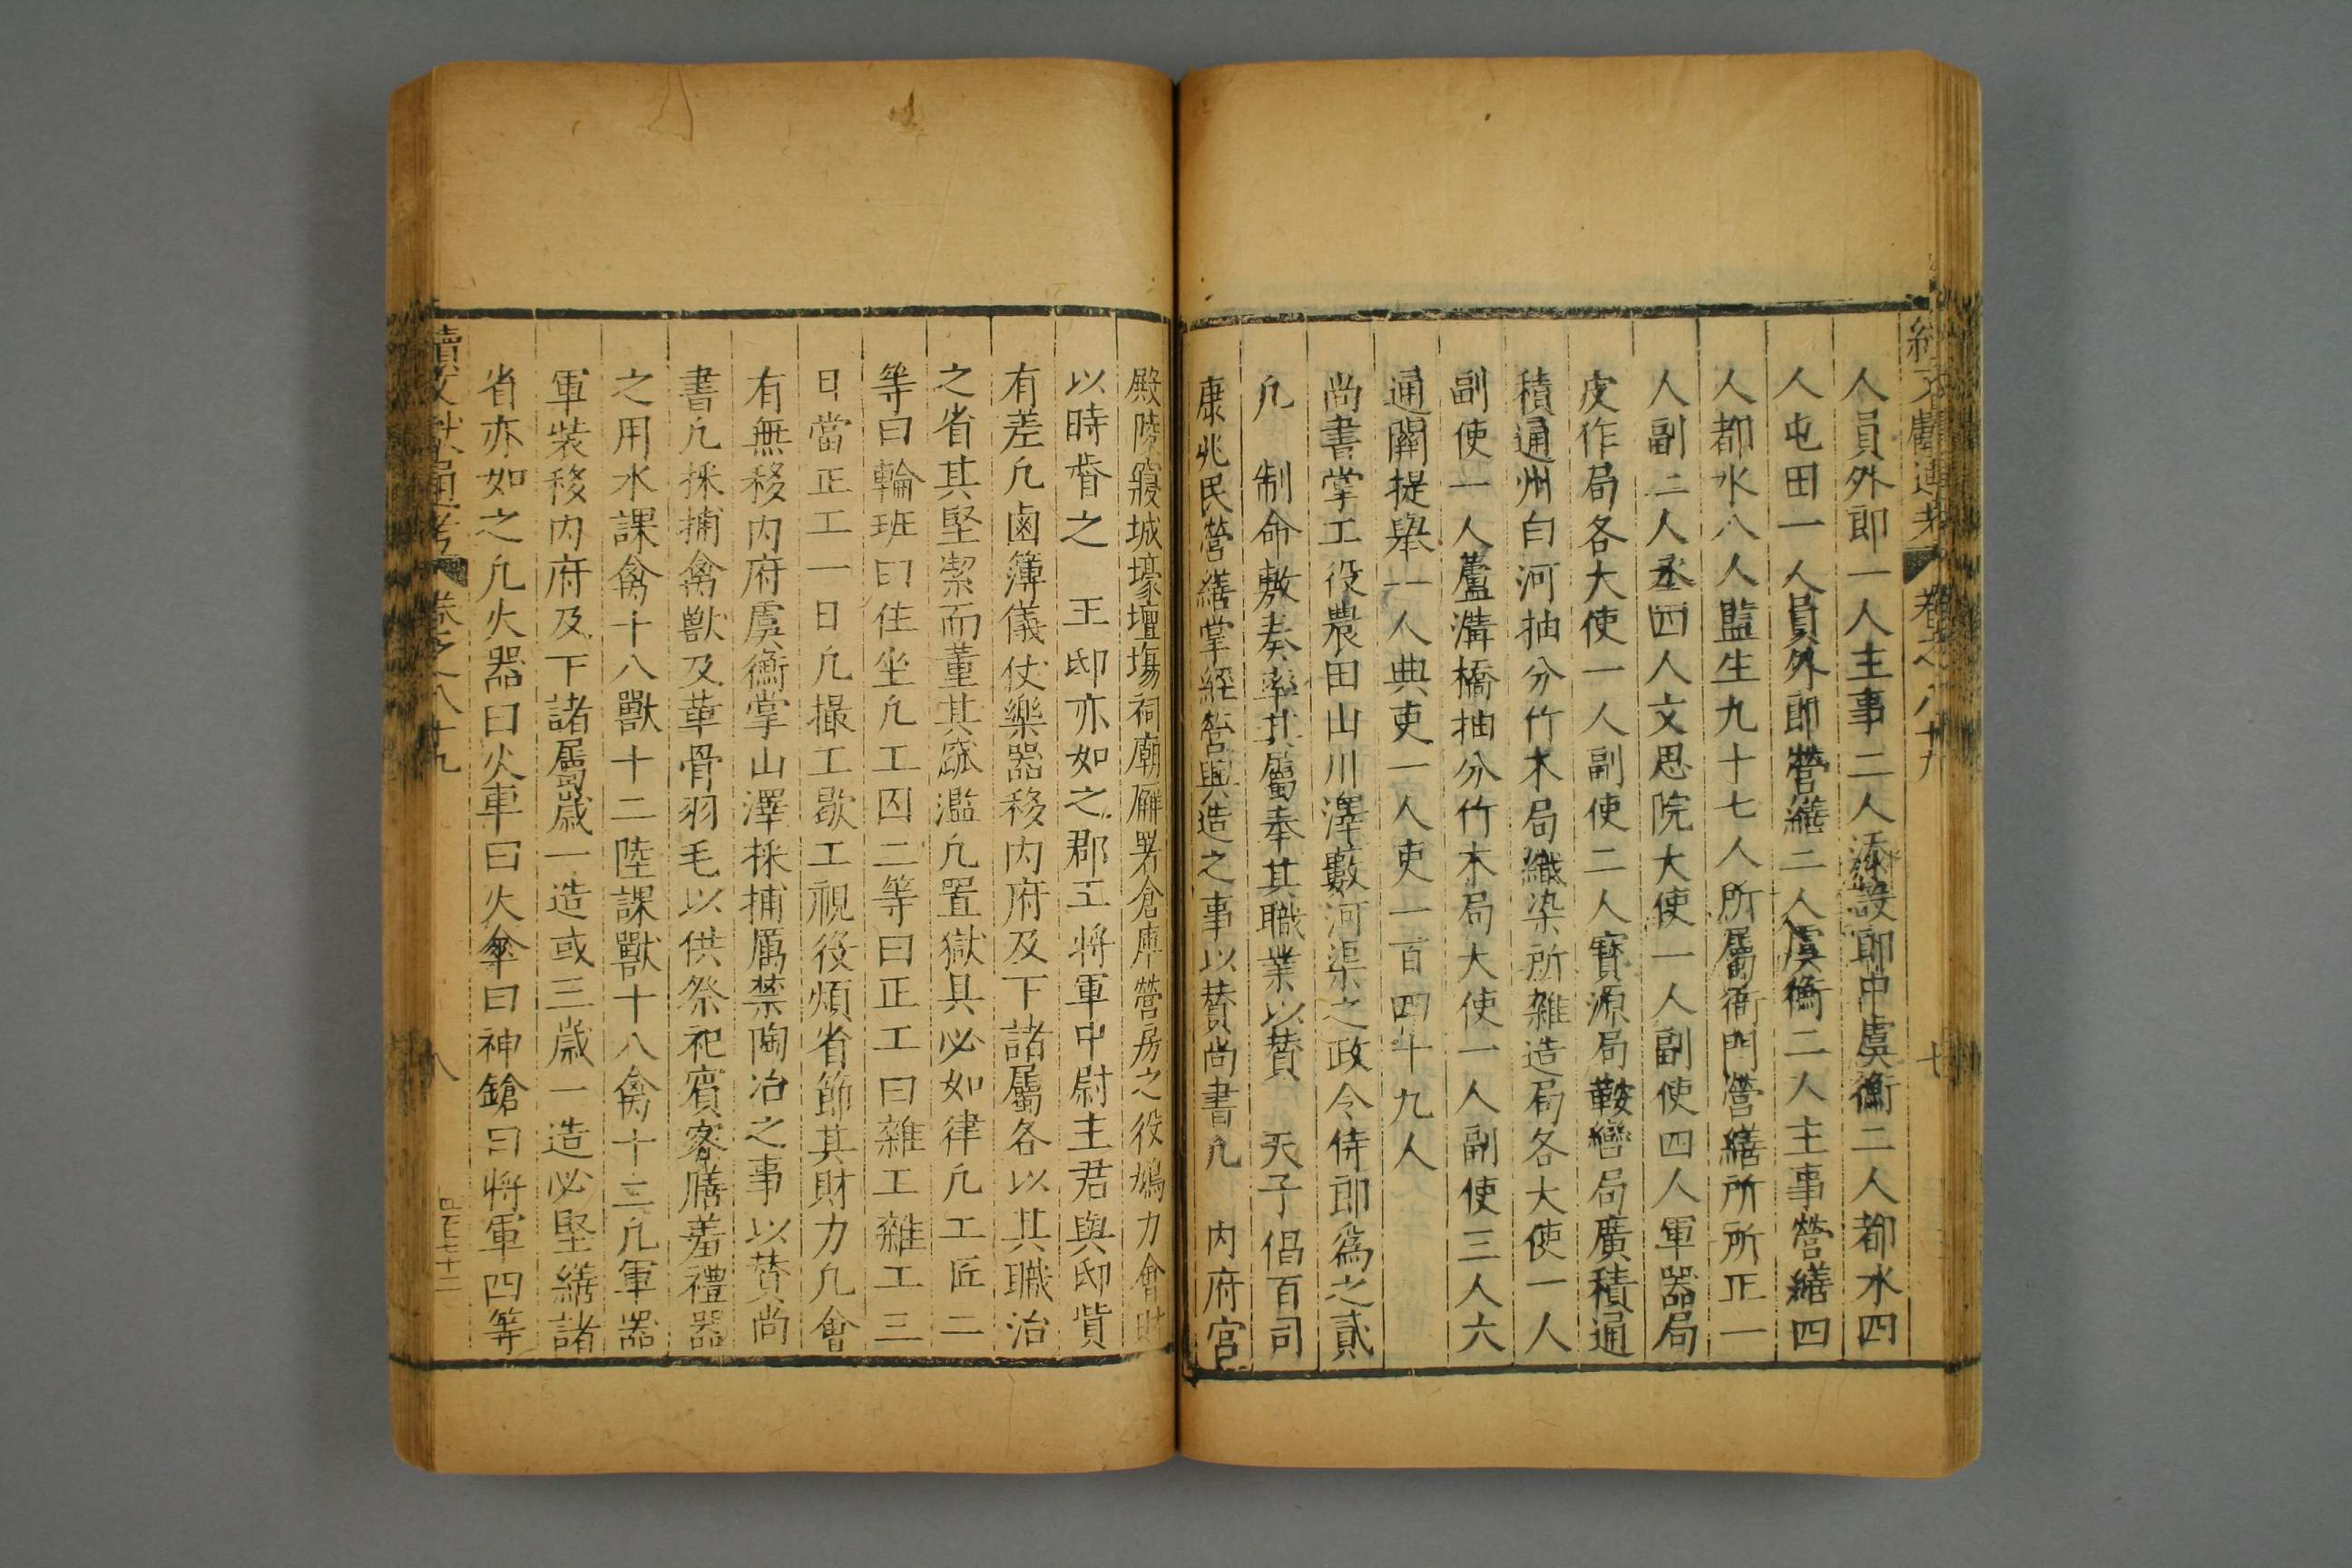 續文獻通考 卷之八十九 七
人員外郎一人主事二人添設郎中虞衡二人都水四
人屯田一人員外郎營繕二人虞衡二人主事營繕四
人都水八人監生九十七人所屬衙門營繕所所正一
人副二人丞四人文思院大使一人副使四人軍器局
皮作局各大使一人副使二人寳源局鞍轡局廣積通
積通州白河抽分竹木局織染所雜造局各大使一人
副使一人蘆溝橋抽分竹木局大使一人副使三人六
通關提舉一人典吏一人吏一百四十九人
尚書掌工役農田山川澤藪河渠之政令侍郎爲之貳
凡 制命敷奏率其屬奉其職業以贊 天子倡百司
康兆民營繕掌經營興造之事以贊尚書凡 内府宫
殿陵寢城壕壇場祠廟廨署倉庫營房之役鳩力會財
以時督之 王邸亦如之郡王將軍中尉主君與邸貲
有差凡鹵簿儀仗樂器移内府及下諸屬各以其職治
之省其堅潔而董其窳濫凡置獄具必如律凡工匠二
等曰輪班曰住坐凡工囚二等曰正工曰雜工雜工三
日當正工一日凡撮工歇工視役煩省節其財力凡會
有無移内府虞衡掌山澤採捕厲禁陶冶之事以贊尚
書凡採捕禽獸及革骨羽毛以供祭祀賓客膳羞禮器
之用水課禽十八獸十二陸課獸十八禽十二凡軍器
軍裝移内府及下諸屬歲一造或三歲一造必堅繕諸
省亦如之凡火器曰火車曰火傘曰神鎗曰將軍四等
續文獻通考 卷之八十九 八 四百七十二